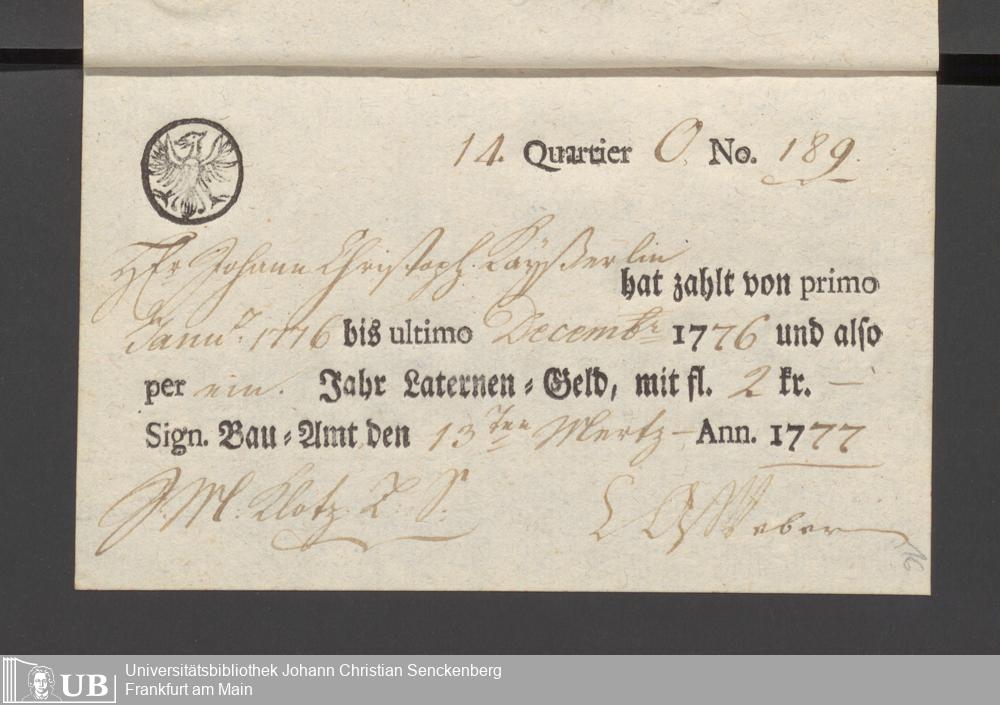 14. Quartier O No. 189.
Johann Christoph Kayßerlin
hat zahlt von primo
Januar. 1776 bis ultimo Decembr 1776 und also
per ein. Jahr Laternen=Geld, mit fl. 2 kr. —
Sign. Bau=Amt, den 13ten Mertz — Ann. 1777
J. M. Klotz
Weber
16
UB
Universitätsbibliothek Johann Christian Senckenberg
Frankfurt am Main